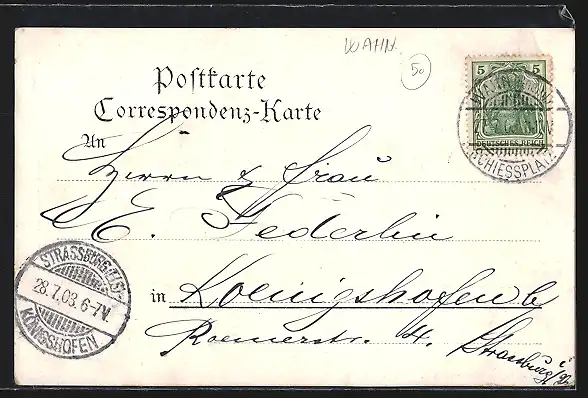 WAHN
50
Postkarte
Correspondenz-Karte
5 5
DEUTSCHES REICH
SCHIESSPLATZ
An
Herrn & Frau
E. Federlin
in Koenigshofen b
Roemerstr. 4. Strassburg i/E.
STRASSBURG (ELS)
28.7.03.6-7V.
KÖNIGSHOFEN